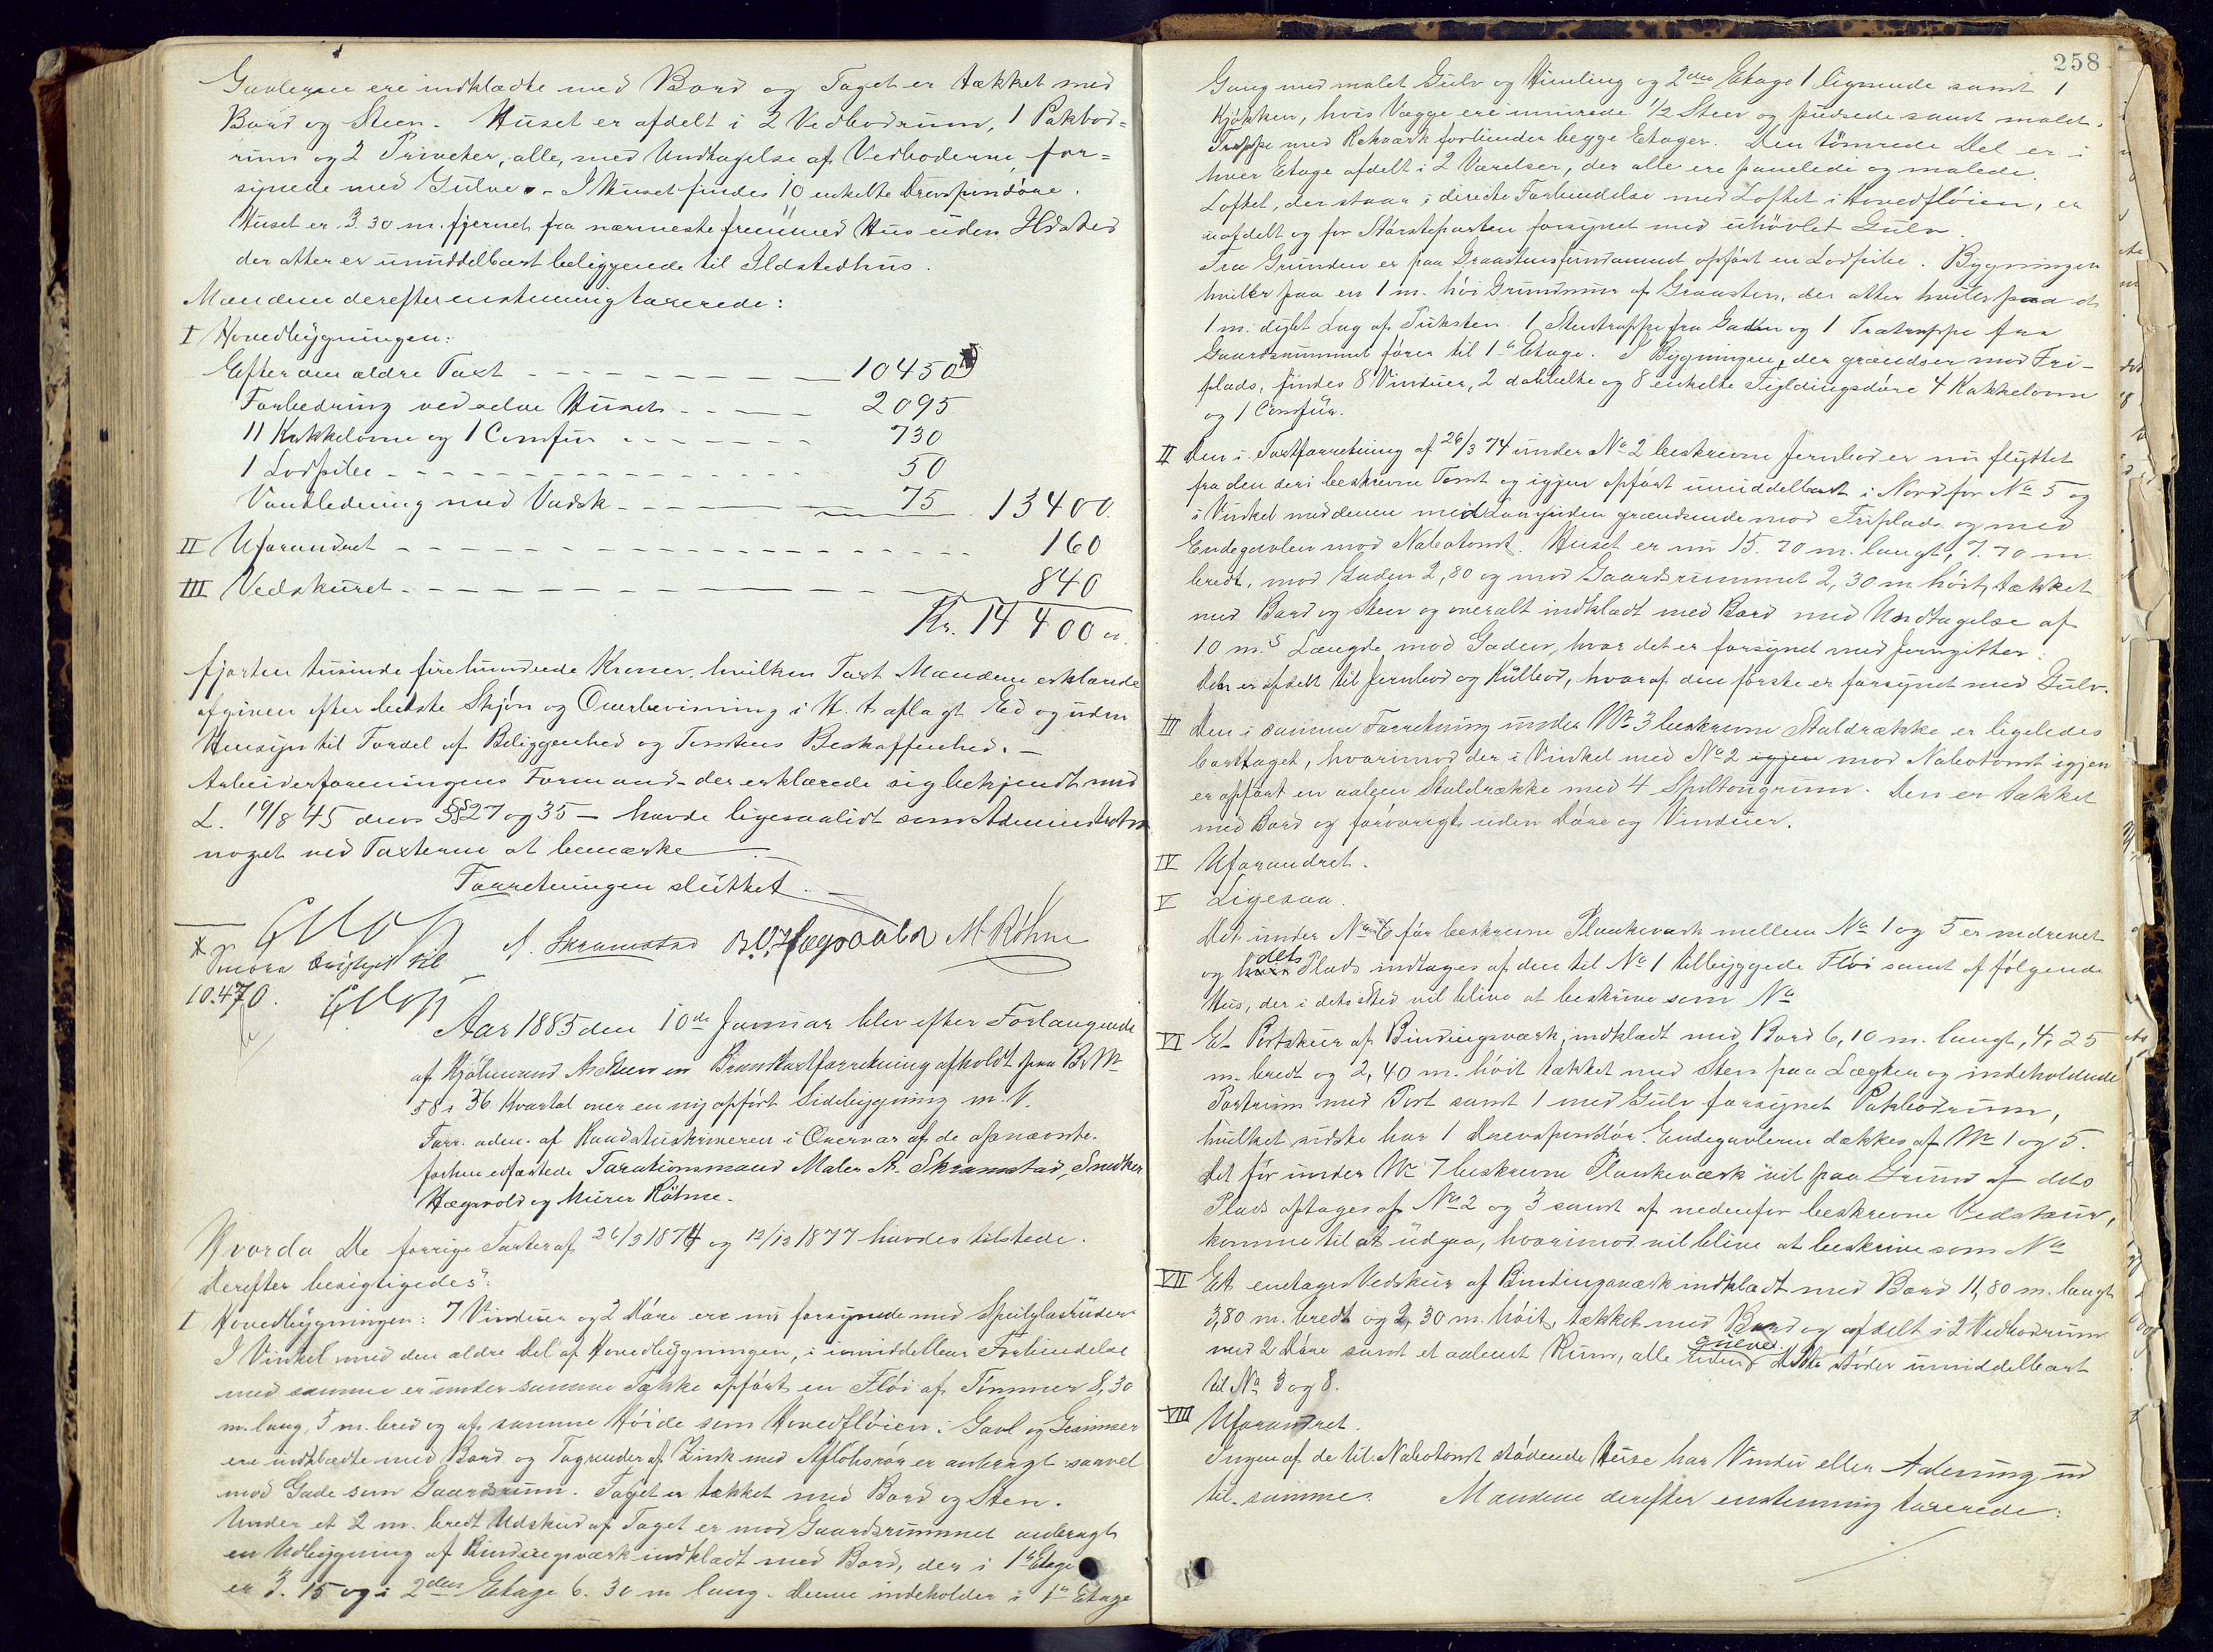 Gavlerne ere indklædte med Bord og Taget er tækket med
Bord og Steen. Huset er afdelt i 2 Vedbodrum, 1 Pakbod=
rum og 2 Priveter, alle, med Undtagelse af Vedboderne, for=
synede med Gulve. - I Huset findes 10 enkelte Drevspendøre.
Huset er 3.30 m. fjernet fra nærmeste fremmed Hus uden Ildsted
der atter er umiddelbart beliggende til Ildstedhus.
Mændene derefter enstemmig taxerede:
I Hovedbygningen:
Efter den ældre Taxt 10450
Forbedring ved selve Huset 2095
11 Kakkelovne og 1 Comfur 730
1 Lodpibe 50
Vandledning med Vadsk 75 13400.
II Uforandret 160
III Vedskuret 840
Kr. 14400
fjorten tusinde firehundrede Kroner, hvilken Taxt Mændene erklærede
afgiven efter bedste Skjøn og Overbevisning i H. t. aflagt Ed og uden
Hensyn til Fordel af Beliggenhed og Tomtens Beskaffenhed. -
Arbeiderforeningens Formand - der erklærede sig bekjendt med
L. 19/8 45 dens §§ 27 og 35 - havde ligesaalidt som Administrator
noget ved Taxterne at bemærke.
Forretningen sluttet.
A. Skramstad O. Hægvold M. Röhne
10.470.
Aar 1885 den 10de Januar blev efter Forlangende
af Kjøbmand A. Steen en Brandtaxtforretning afholdt paa B. No
58 i 36 Kvartal over en ny opført Sidebygning m. V.
Forr. adm. af Raadstueskriveren i Overvær af de opnævnte,
forhen edfæstede Taxationsmænd Maler A. Skramstad, Snedker
Hægvold og Murer Röhne.
Hvorda De forrige Taxter af 26/3 1874 og 12/12 1877 havdes tilstede.
Derefter besigtigedes:
I Hovedbygningen: 7 Vinduer og 2 Døre ere nu forsynede med Speilglasruder.
I Vinkel med den ældre Del af Hovedbygningen, i umiddelbar Forbindelse
med samme er under samme Række opført en Fløi af Tømmer 8,30
m. lang, 5 m. bred og af samme Høide som Hovedfløien. Gavl og Gesimser
ere indklædte med Bord og Tagrender af Zink med Afløbsrør er anbragt saavel
mod Gade som Gaardsrum. Taget er tækket med Bord og Sten.
Under et 2 m. bredt Udskud af Taget er mod Gaardsrummet anbragt
en Udbygning af Bindingsværk indklædt med Bord, der i 1ste Etage
er 3.15 og i 2den Etage 6.30 m lang. Denne indeholder i 1ste Etage
258
Gang med malet Gulv og Himling og 2den Etage 1 lignende samt 1
Kjøkken, hvis Vægge ere inmurede 1/2 Sten og pudsede samt malet.
Trappe med Rekværk forbinder begge Etager. Den tømrede Del er i
hver Etage afdelt i 2 Værelser, der alle ere panelede og malede.
Loftet, der staar i directe Forbindelse med Loftet i Hovedfløien, er
uafdelt og for Størsteparten forsynet med uhøvlet Gulv.
Fra Grunden er paa Graastensfundament opført en Lodpibe. Bygningen
hviler paa en 1 m. høi Grundmur af Graasten, der atter hviler paa et
1 m. dybt Lag af Puksten. 1 Stentrappe fra Gaden og 1 Trætrappe fra
Gaardsrummet fører til 1ste Etage. I Bygningen, der grændser mod Fri-
plads, findes 8 Vinduer, 2 dobbelte og 8 enkelte Fyldingsdøre 4 Kakkelovne
og 1 Comfur.
II Den i Taxtforretning af 26/3 74 under No 2 beskrevne Jernbod er nu flyttet
fra den deri beskrevne Tomt og igjen opført umiddelbart i Nord for No 5 og
i Vinkel med denne med Langsiden grændsende mod Friplads og med
Endegavlen mod Nabotomt. Huset er nu 15.70 m. langt, 7.70 m
bredt, mod Gaden 2,80 og mod Gaardsrummet 2,30 m. høit, tækket
med Bord og Steen og overalt indklædt med Bord med Undtagelse af
10 m.s Længde mod Gaden, hvor det er forsynet med Jerngitter.
Den er afdelt til Jernbod og Kulbod, hvoraf den første er forsynet med Gulv.
III Den i samme Forretning under No 3 beskrevne Staldrække er ligeledes
borttaget, hvorimod der i Vinkel med No 2 igjen mod Nabotomt igjen
er opført en aaben Staldrække med 4 Spiltougrum. Den er tækket
med Bord og forøvrigt uden Døre og Vinduer.
IV Uforandret.
V Ligesaa.
Det under No 6 før beskrevne Plankeværk mellem No 1 og 5 er nedrevet
og dets Plads indtages af den til No 1 tilbyggede Fløi samt af følgende
Hus, der i dets Sted vil blive at beskrive som No
VI Et Portskur af Bindingsværk, indklædt med Bord 6,10 m. langt, 4,25
m. bredt og 2,40 m. høit tækket med Steen paa Lægter og indeholdende
Portrum med Port samt 1 med Gulv forsynet Pakbodrum,
hvilket sidste har 1 Drevspendør. Endegavlerne dækkes af No 1 og 5.
Det før under No 7 beskrevne Plankeværk vil paa Grund af dets
Plads optages af No 2 og 3 samt af nedenfor beskrevne Vedskur,
komme til at udgaa, hvorimod vil blive at beskrive som No
VII Et enetages Vedskur af Bindingsværk indklædt med Bord 11,80 m. langt
3,80 m. bredt og 2,30 m. høit, tækket med Bord og afdelt i 2 Vedbodrum
med 2 Døre samt et aabent Rum, alle uden Gulve. Dette støder umiddelbart
til No 3 og 8.
VIII Uforandret.
Ingen af de til Nabotomt stødende Huse har Vindu eller Aabning ud
til samme. Mændene derefter enstemmig taxerede: